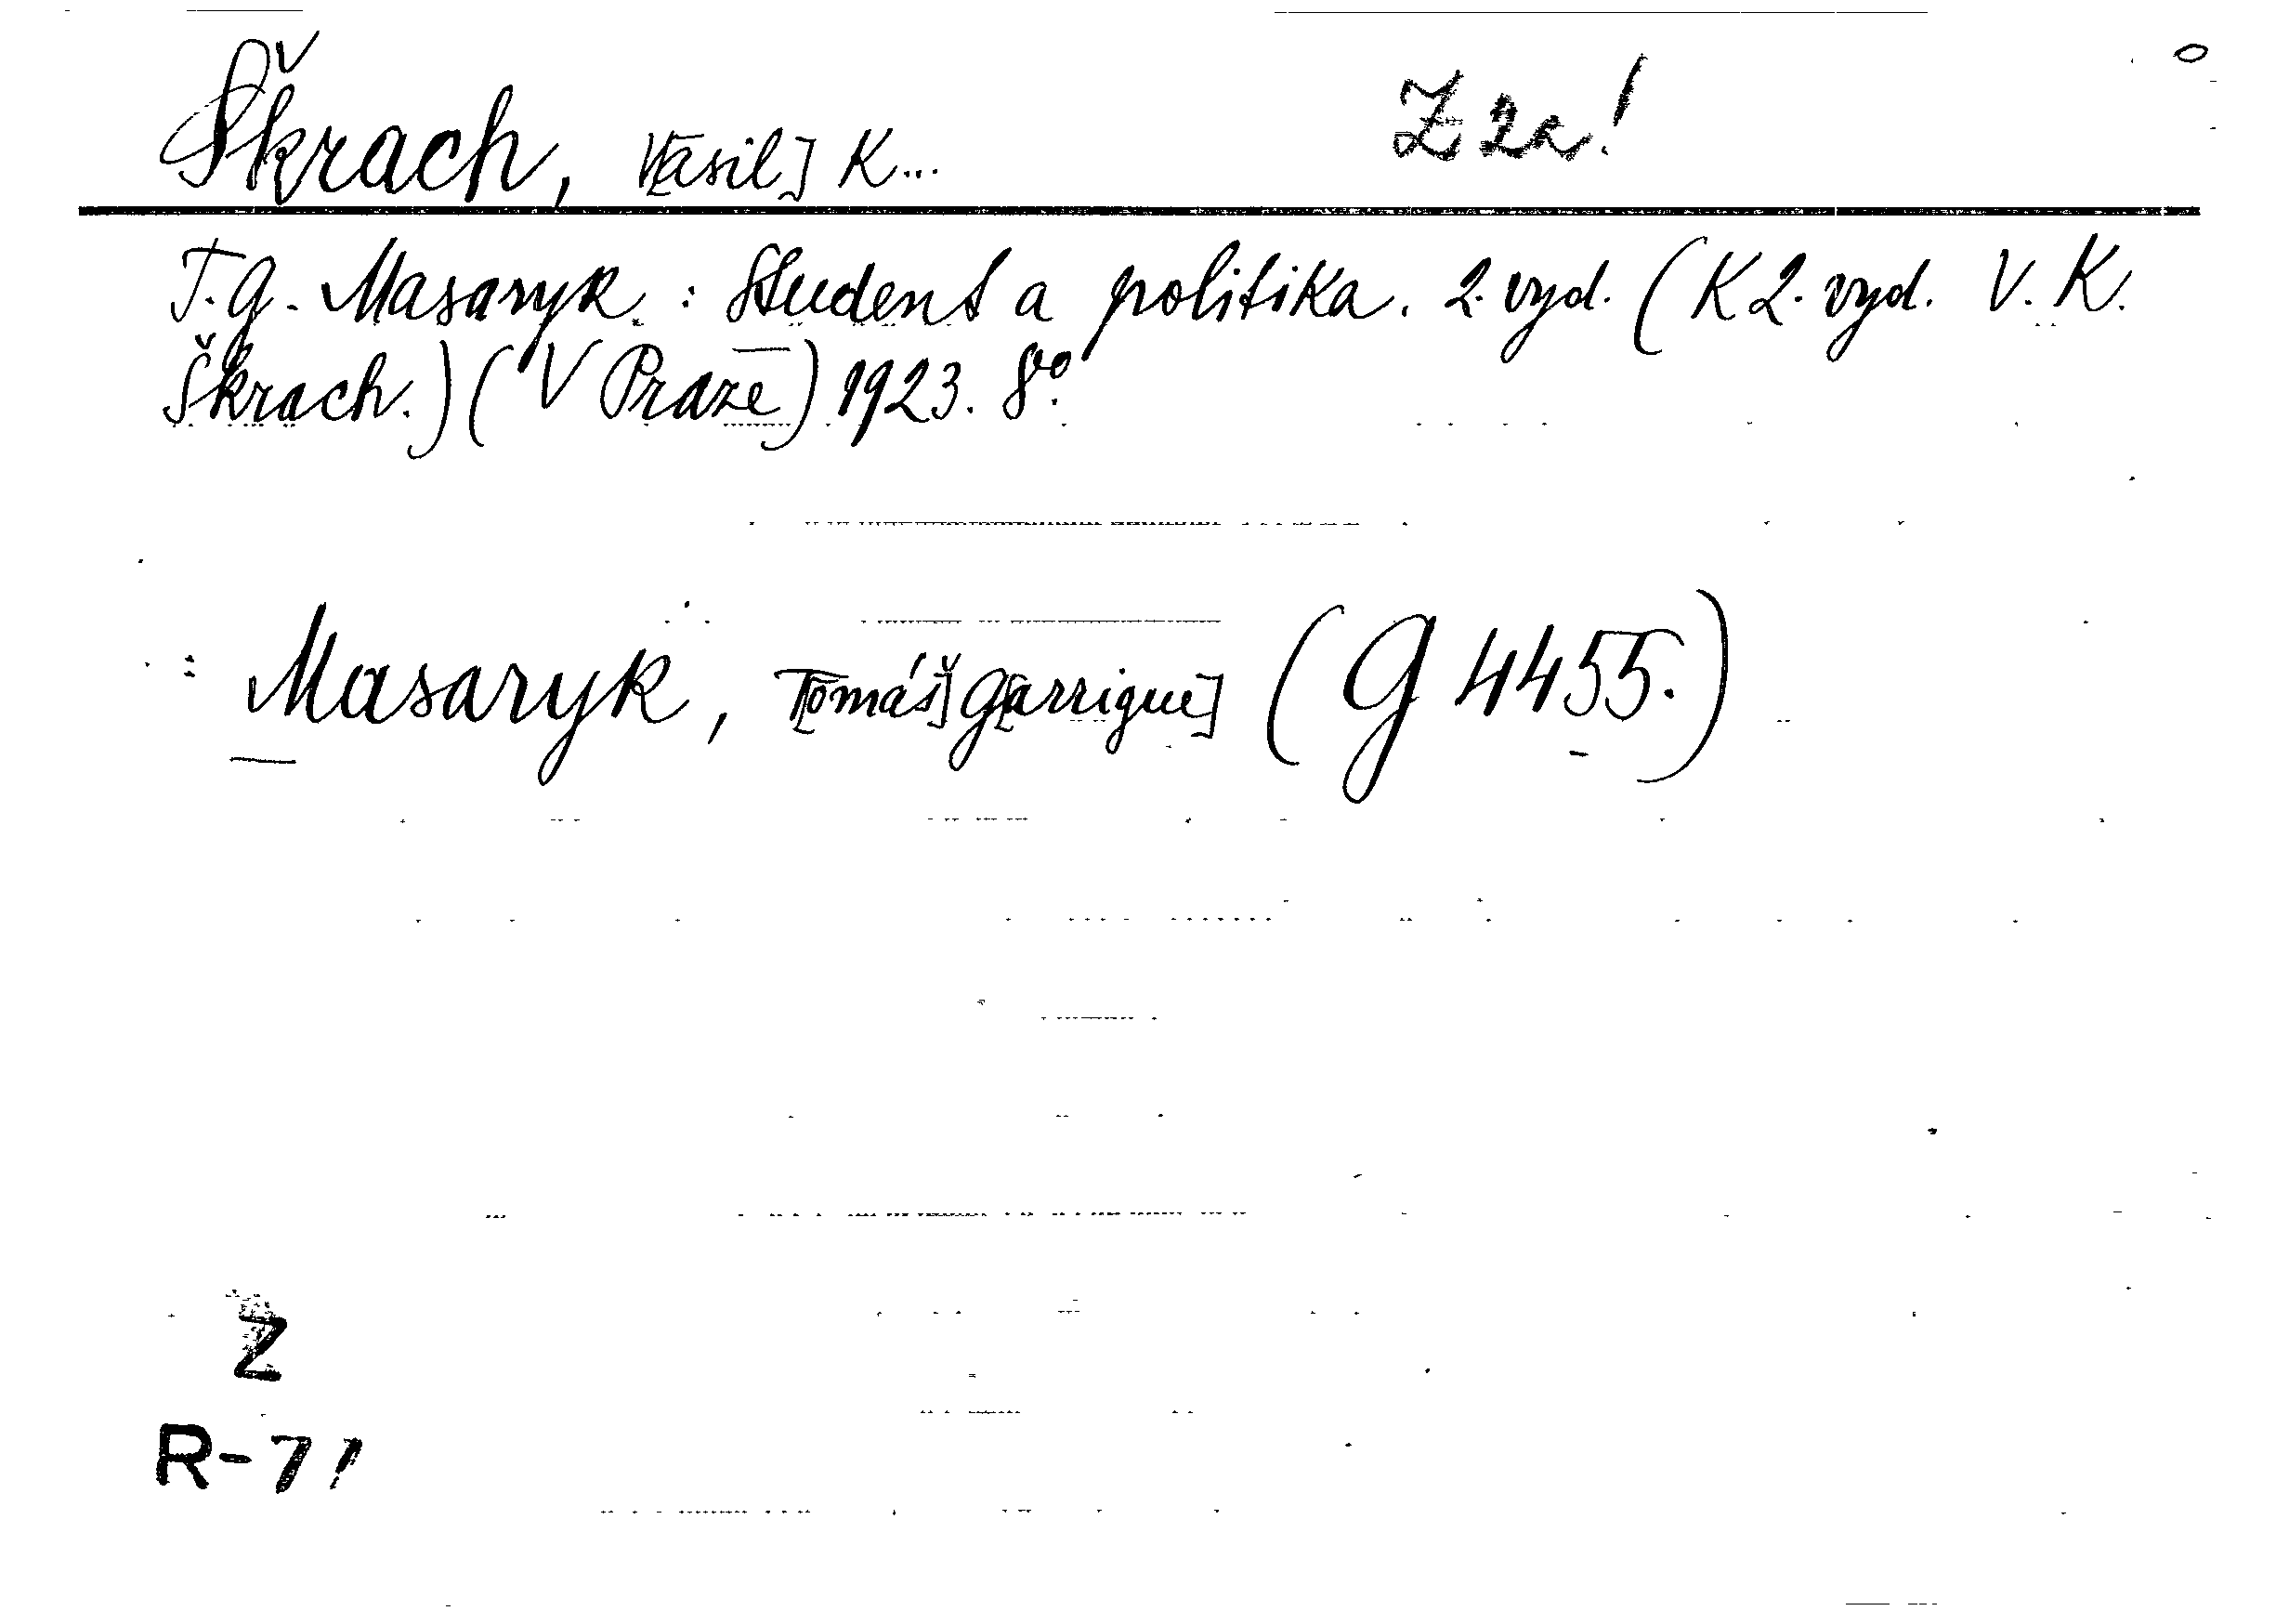 Škrach, V[asil] K... Z za!
T. G. Masaryk : Student a politika. 2. vyd. (K 2. vyd. V. K.
Škrach.) (V Praze) 1923. 8°.
: Masaryk, T[omáš] G[arrigue] (G 4455.)
Z
R-71